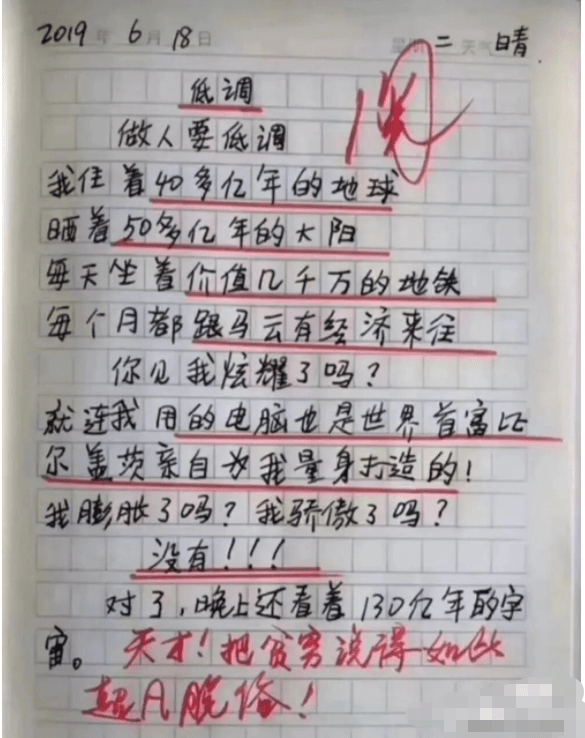 2019年6月18日 星期二 天气 晴
低调
优
做人要低调
我住着40多亿年的地球
晒着50多亿年的大阳
每天坐着价值几千万的地铁
每个月都跟马云有经济来往
你见我炫耀了吗?
就连我用的电脑也是世界首富比
尔盖茨亲自为我量身打造的!
我膨胀了吗?我骄傲了吗?
没有!!!
对了,晚上还看着130亿年的宇
宙。天才!把贫穷说得如此
超凡脱俗!